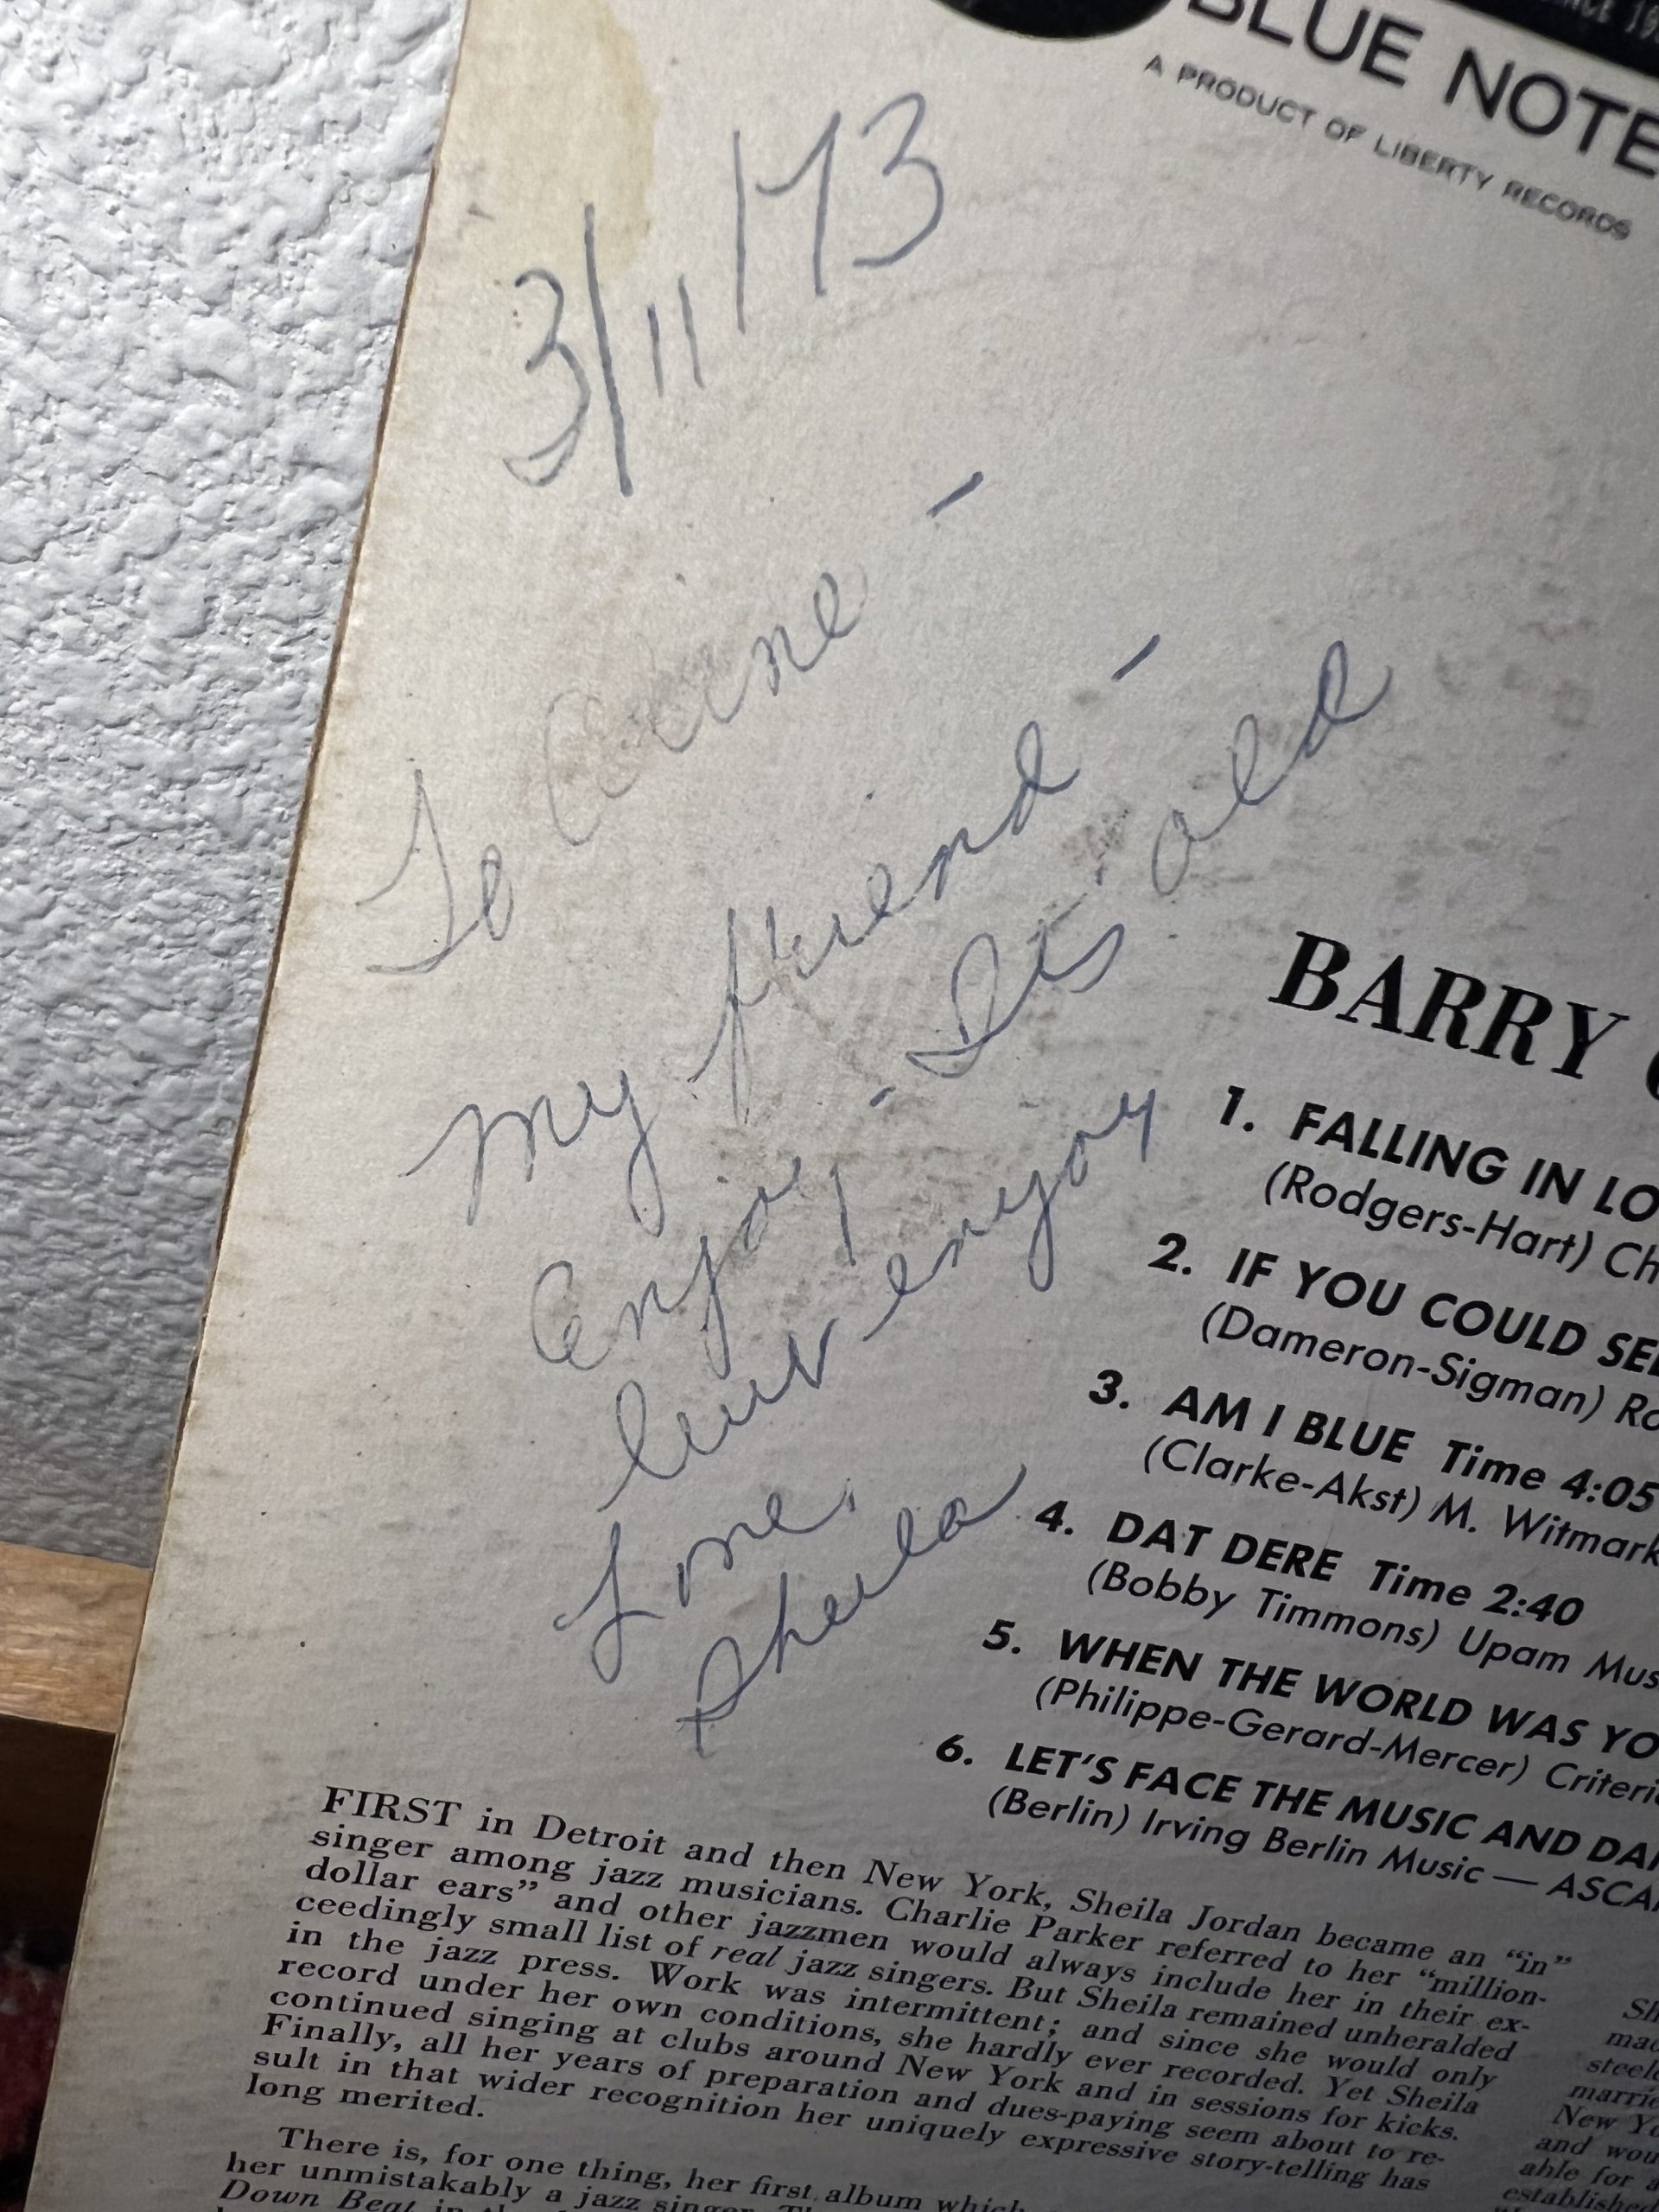 BLUE NOTE
A PRODUCT OF LIBERTY RECORDS
3/11/73
To Arine -
My friend -
Enjoy - Its old
but enjoy
Love,
Sheila
BARRY
1. FALLING IN LO
(Rodgers-Hart) Ch
2. IF YOU COULD SEE
(Dameron-Sigman) Ro
3. AM I BLUE Time 4:05
(Clarke-Akst) M. Witmark
4. DAT DERE Time 2:40
(Bobby Timmons) Upam Mus
5. WHEN THE WORLD WAS YO
(Philippe-Gerard-Mercer) Criteri
6. LET'S FACE THE MUSIC AND DA
(Berlin) Irving Berlin Music — ASCA
FIRST in Detroit and then New York, Sheila Jordan became an "in"
singer among jazz musicians. Charlie Parker referred to her "million-
dollar ears" and other jazzmen would always include her in their ex-
ceedingly small list of real jazz singers. But Sheila remained unheralded
in the jazz press. Work was intermittent; and since she would only
record under her own conditions, she hardly ever recorded. Yet Sheila
continued singing at clubs around New York and in sessions for kicks.
Finally, all her years of preparation and dues-paying seem about to re-
sult in that wider recognition her uniquely expressive story-telling has
long merited.
There is, for one thing, her first album which
her unmistakably a jazz singer.
Down Beat in
Sh
mad
steel
marrie
New Yo
and wou
able for a
established